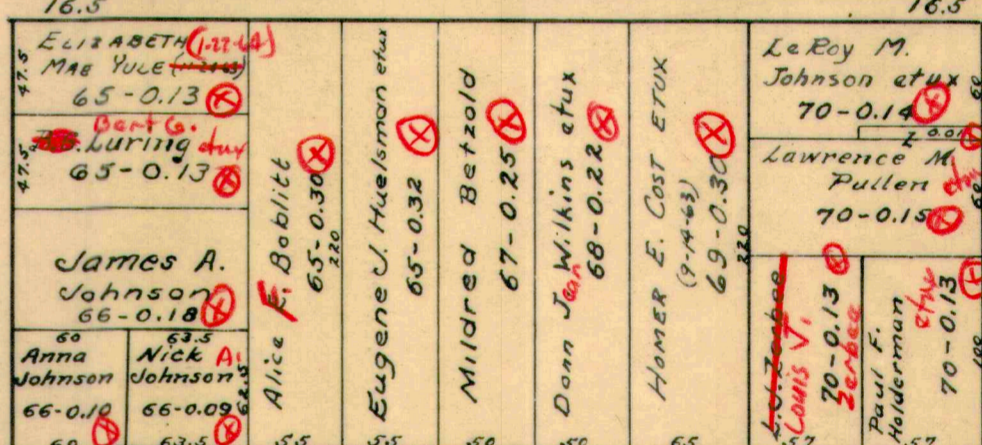 16.5
16.5
47.5
ELIZABETH (1-22-64)
MAE YULE
65-0.13
47.5
Bert G.
Luring etux
65-0.13
James A.
Johnson
66-0.18
60
Anna
Johnson
66-0.10
60
63.5
Nick A.
Johnson
66-0.09
62.5
63.5
Alice F. Bablitt
65-0.30
220
55
Eugene J. Huelsman etux
65-0.32
55
Mildred Betzold
67-0.25
50
Donn Jean Wilkins etux
68-0.22
50
HOMER E. COST ETUX
(9-14-63)
69-0.30
220
65
LeRoy M.
Johnson etux
70-0.14
60
0.01
Lawrence M.
Pullen etux
70-0.15
60
Louis J.
Zerbee
70-0.13
57
Paul F.
Holderman
etux
70-0.13
100
57